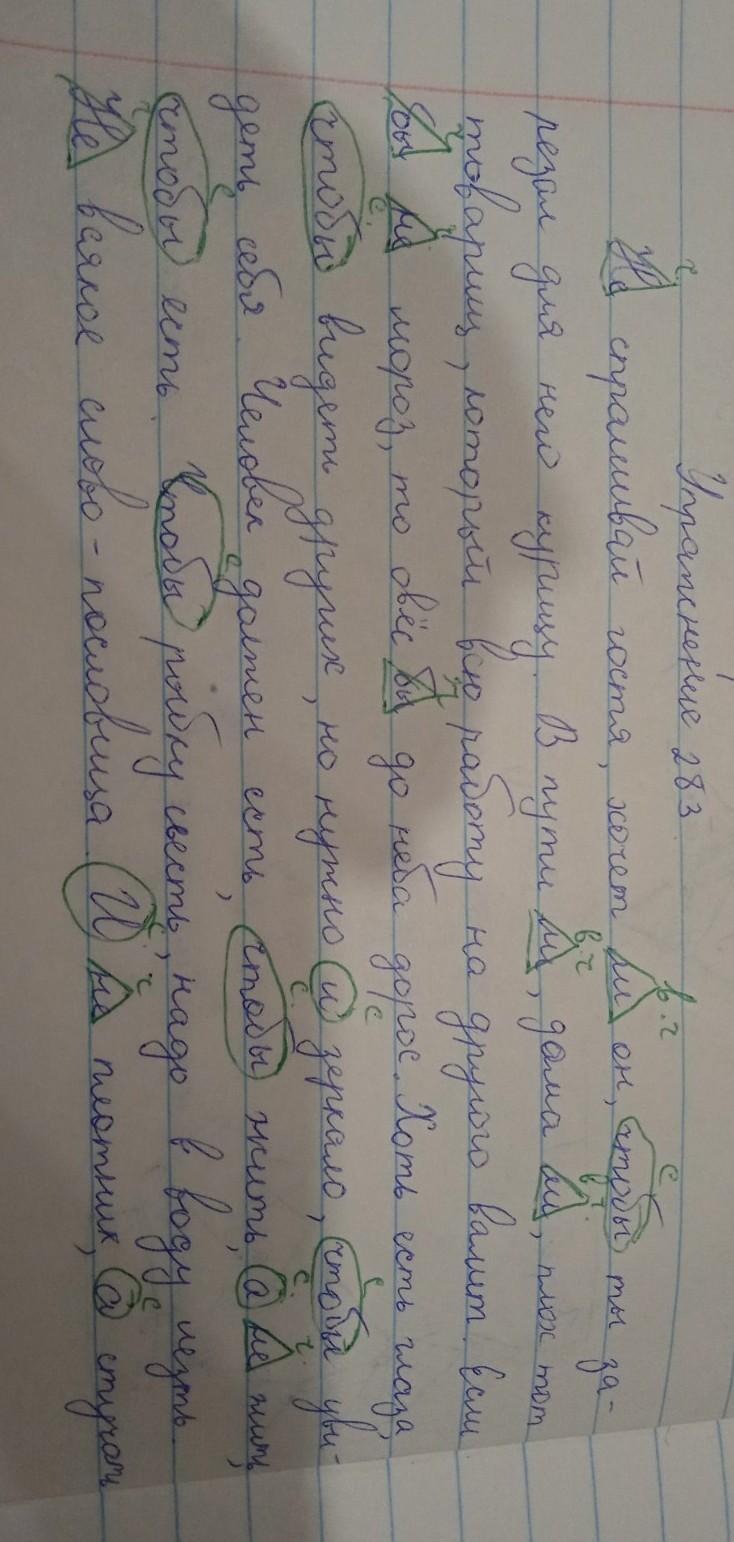 Упражнение 283.
Не спрашивай гостя, хочет ли он, чтобы ты за-
резал для него курицу. В пути ли, дома ли, плох тот
товарищ, который всю работу на другого валит. Если
бы не мороз, то овёс бы до неба дорос. Хоть есть глаза,
чтобы видеть других, но нужно и зеркало, чтобы уви-
деть себя. Человек должен есть, чтобы жить, а не жить,
чтобы есть. Чтобы рыбку съесть, надо в воду лезть.
Не всякое слово - пословица. И не плотник, а стучать